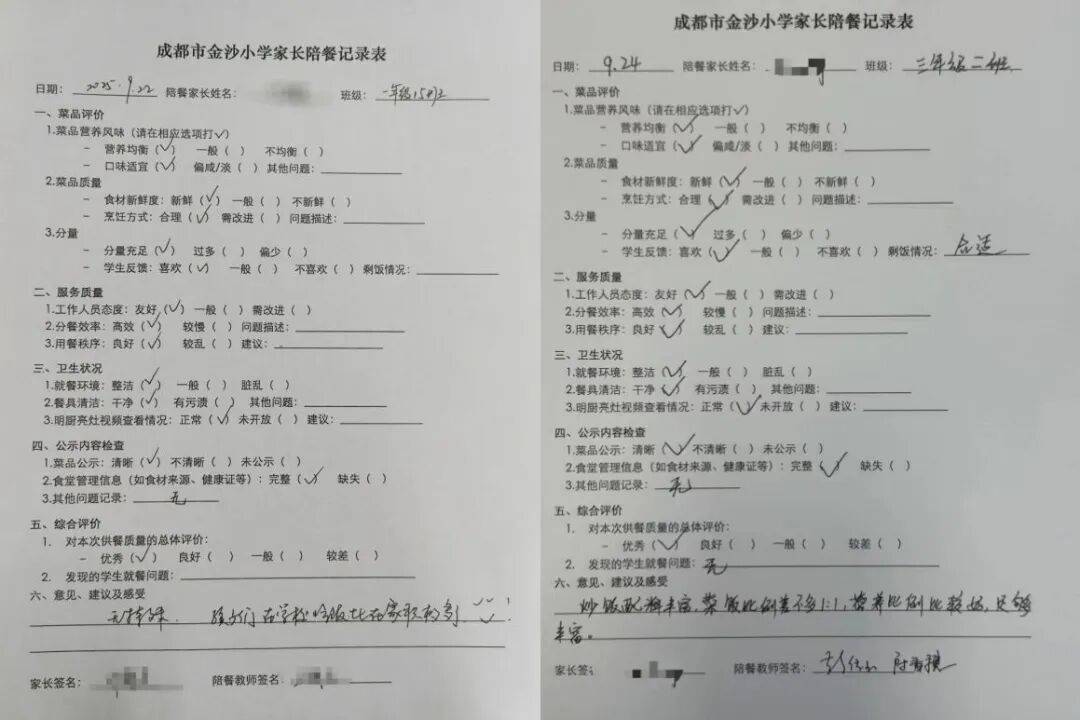 成都市金沙小学家长陪餐记录表
日期：2025.9.22 陪餐家长姓名： 班级：一年级15班
一、菜品评价
1.菜品营养风味（请在相应选项打✓）
- 营养均衡（✓） 一般（ ） 不均衡（ ）
- 口味适宜（✓） 偏咸/淡（ ）其他问题：
2.菜品质量
- 食材新鲜度：新鲜（✓） 一般（ ） 不新鲜（ ）
- 烹饪方式：合理（✓） 需改进（ ）问题描述：
3.分量
- 分量充足（✓） 过多（ ） 偏少（ ）
- 学生反馈：喜欢（✓） 一般（ ） 不喜欢（ ）剩饭情况：
二、服务质量
1.工作人员态度：友好（✓）一般（ ）需改进（ ）
2.分餐效率：高效（✓） 较慢（ ）问题描述：
3.用餐秩序：良好（✓） 较乱（ ）建议：
三、卫生状况
1.就餐环境：整洁（✓） 一般（ ） 脏乱（ ）
2.餐具清洁：干净（✓） 有污渍（ ） 其他问题：
3.明厨亮灶视频查看情况：正常（✓）未开放（ ）建议：
四、公示内容检查
1.菜品公示：清晰（✓）不清晰（ ）未公示（ ）
2.食堂管理信息（如食材来源、健康证等）：完整（✓） 缺失（ ）
3.其他问题记录：无
五、综合评价
1. 对本次供餐质量的总体评价：
- 优秀（✓） 良好（ ） 一般（ ） 较差（ ）
2. 发现的学生就餐问题：
六、意见、建议及感受
孩子们在学校吃饭比在家吃的多
家长签名： 陪餐教师签名：
成都市金沙小学家长陪餐记录表
日期：9.24 陪餐家长姓名： 班级：三年级二班
一、菜品评价
1.菜品营养风味（请在相应选项打✓）
- 营养均衡（✓） 一般（ ） 不均衡（ ）
- 口味适宜（✓） 偏咸/淡（ ）其他问题：
2.菜品质量
- 食材新鲜度：新鲜（✓） 一般（ ） 不新鲜（ ）
- 烹饪方式：合理（✓） 需改进（ ）问题描述：
3.分量
- 分量充足（✓） 过多（ ） 偏少（ ）
- 学生反馈：喜欢（✓） 一般（ ） 不喜欢（ ）剩饭情况：合适
二、服务质量
1.工作人员态度：友好（✓）一般（ ）需改进（ ）
2.分餐效率：高效（✓） 较慢（ ）问题描述：
3.用餐秩序：良好（✓） 较乱（ ）建议：
三、卫生状况
1.就餐环境：整洁（✓） 一般（ ） 脏乱（ ）
2.餐具清洁：干净（✓） 有污渍（ ） 其他问题：
3.明厨亮灶视频查看情况：正常（✓）未开放（ ）建议：
四、公示内容检查
1.菜品公示：清晰（✓）不清晰（ ）未公示（ ）
2.食堂管理信息（如食材来源、健康证等）：完整（✓） 缺失（ ）
3.其他问题记录：无
五、综合评价
1. 对本次供餐质量的总体评价：
- 优秀（✓） 良好（ ） 一般（ ） 较差（ ）
2. 发现的学生就餐问题：无
六、意见、建议及感受
炒饭配料丰富，菜饭比例差不多1:1，营养比例比较好，足够
丰富。
家长签： 陪餐教师签名：